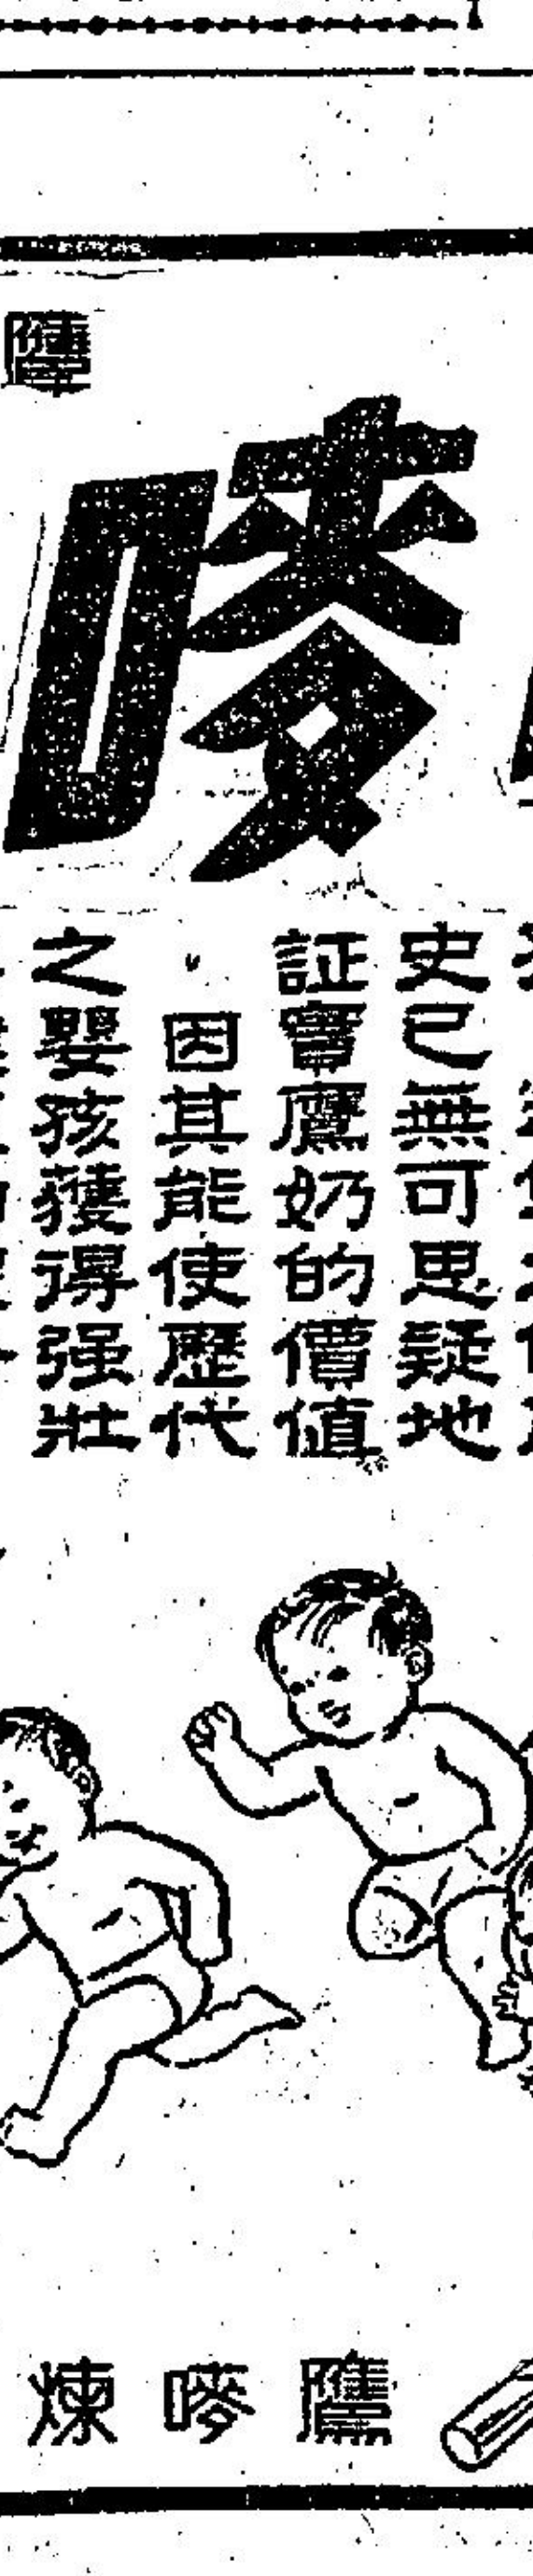 嘜
史已無可思疑地
証實鷹奶的價值
因其能使歷代
之嬰孩獲得强壯
鷹嘜煉